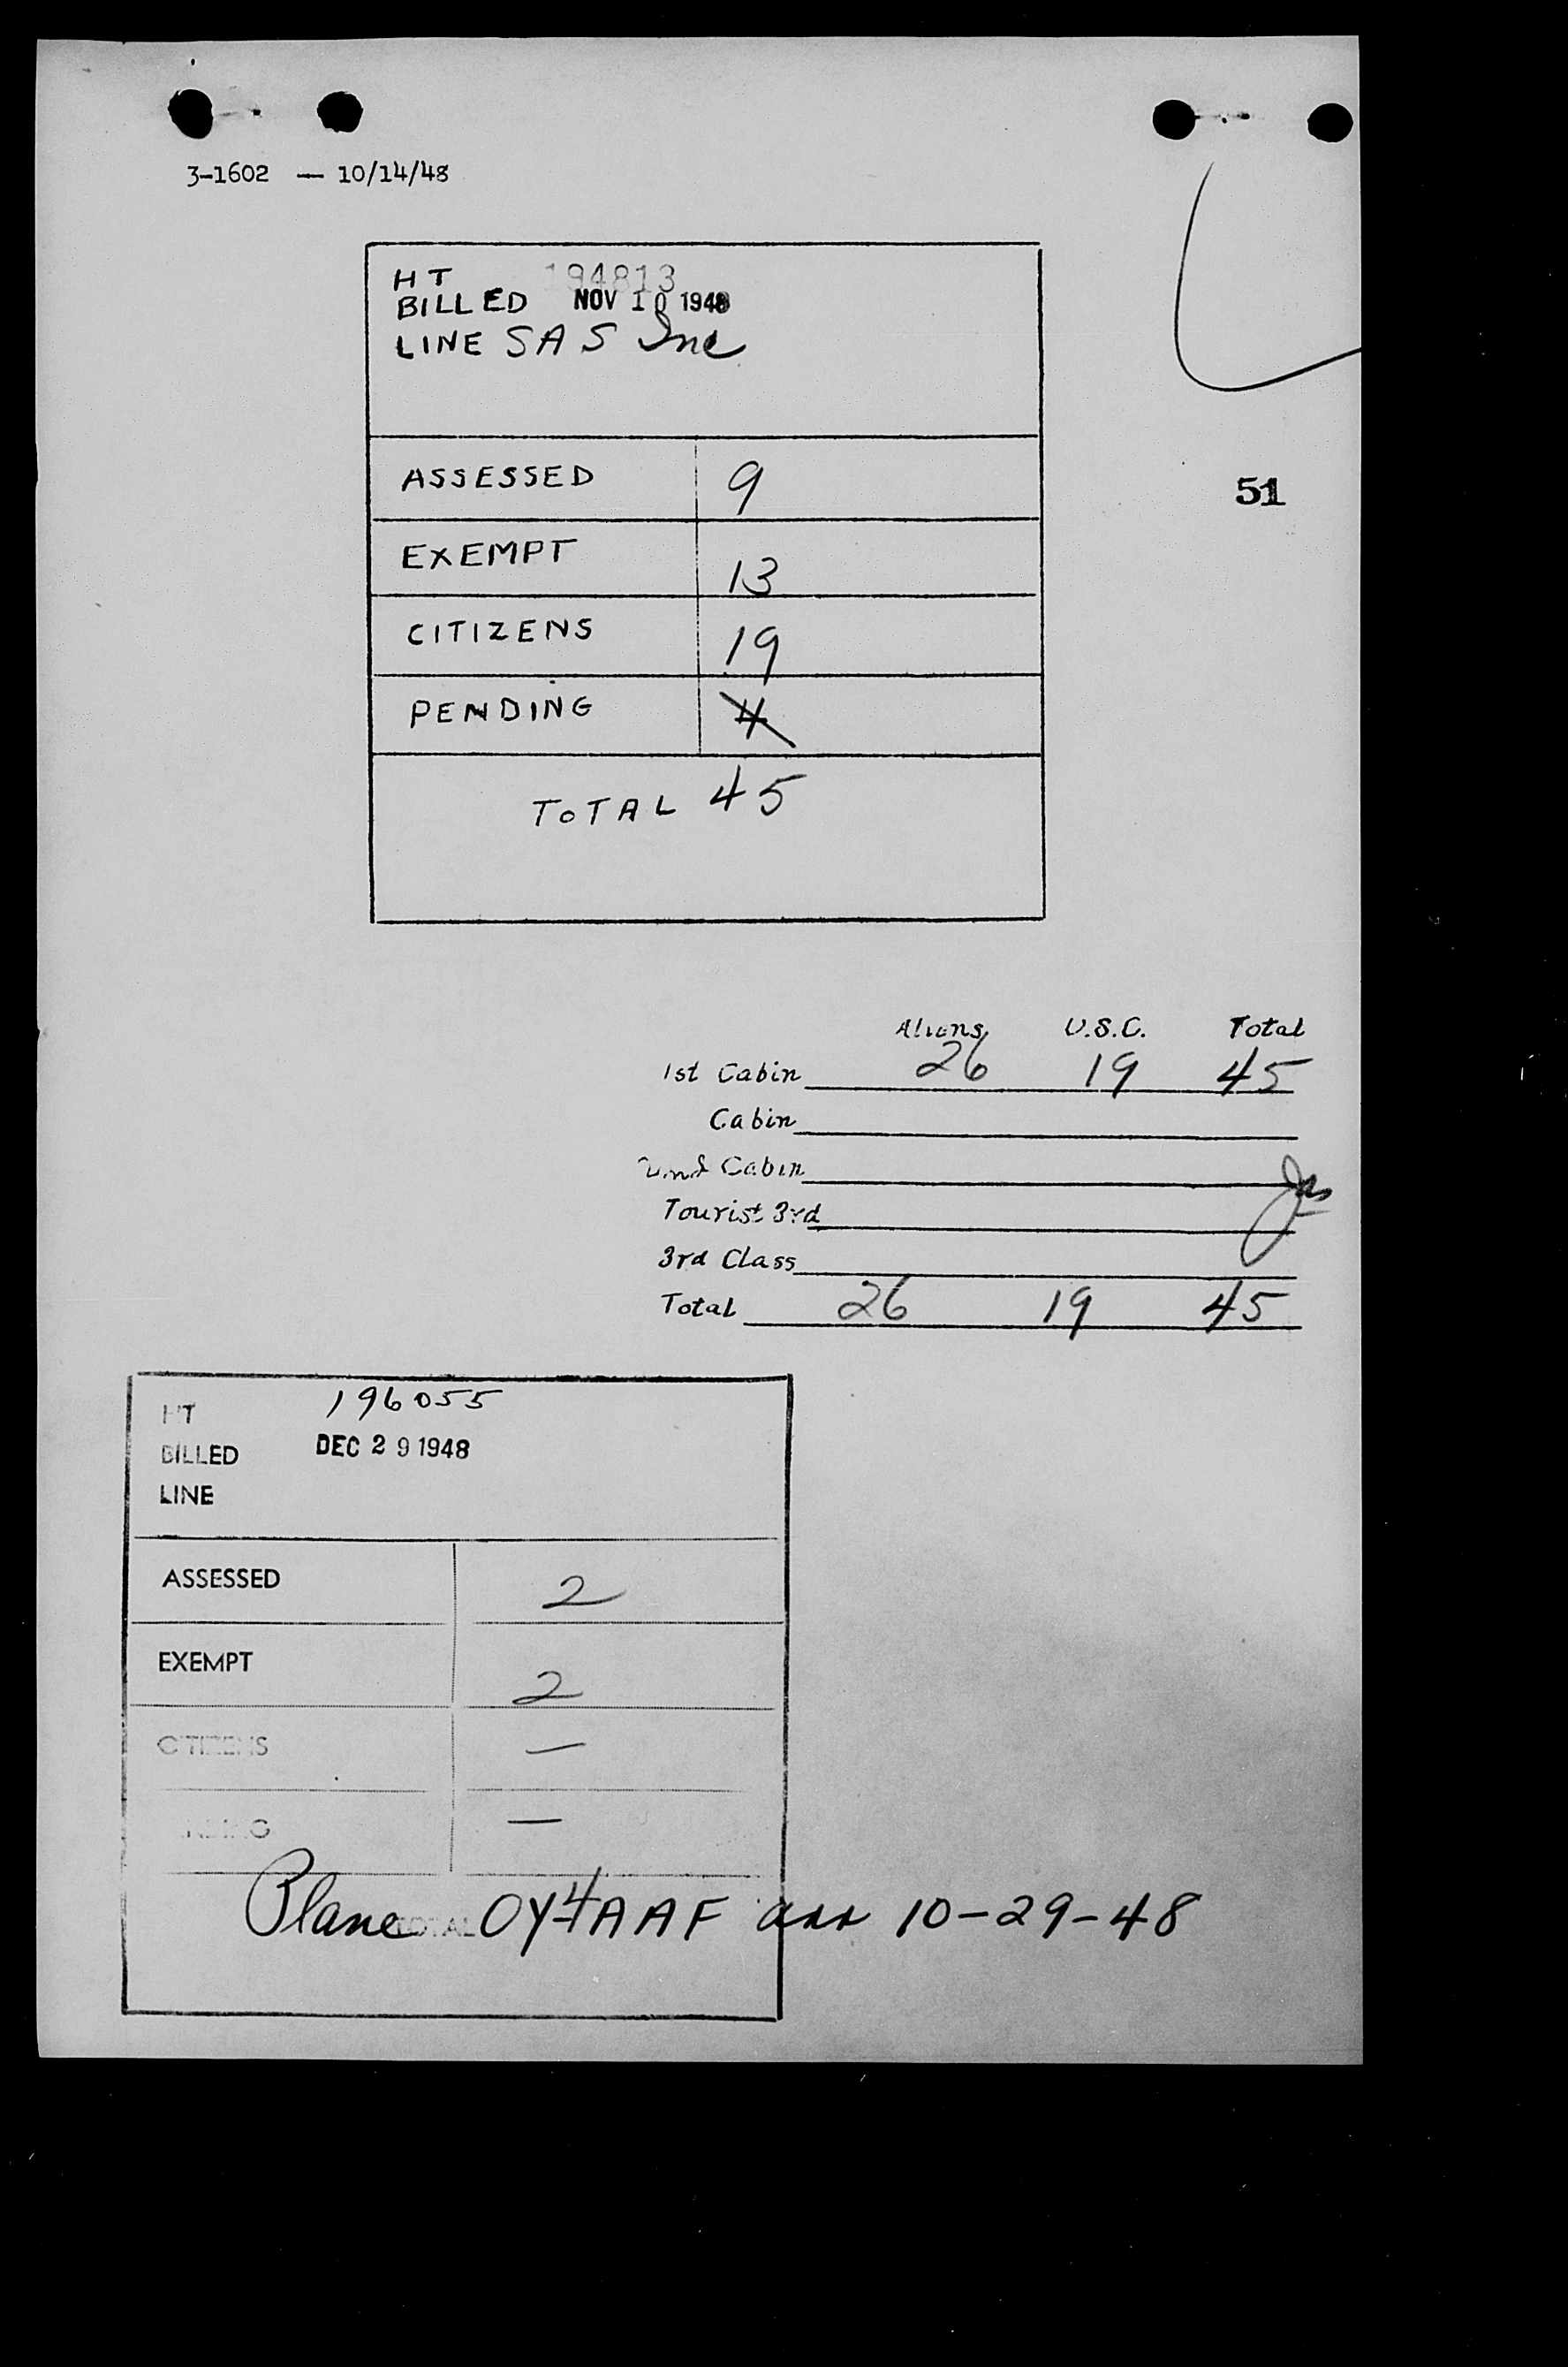 3-1602 — 10/14/48
HT 194813
BILLED NOV 10 1948
LINE SAS Inc
51
ASSESSED 9
EXEMPT 13
CITIZENS 19
PENDING 4
TOTAL 45
Aliens U.S.C. Total
1st Cabin 26 19 45
Cabin
2nd Cabin
Tourist 3rd
3rd Class
Total 26 19 45
HT 196055
BILLED DEC 29 1948
LINE
ASSESSED 2
EXEMPT 2
CITIZENS —
PENDING —
TOTAL 4
Plane OY-AAF arr 10-29-48